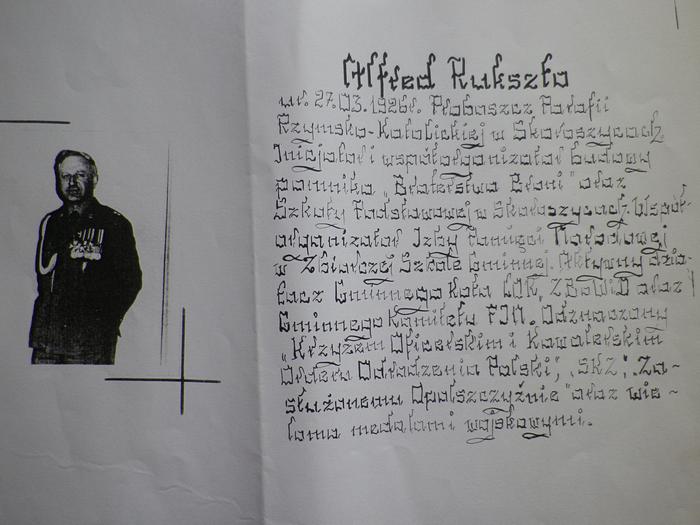 Alfred Rukszto
ur. 27.03.1926r. Proboszcz Parafii
Rzymsko-Katolickiej w Skoroszycach
Inicjator i współorganizator budowy
pomnika „Braterstwa Broni" oraz
Szkoły Podstawowej w Skoroszycach. Współ-
organizator Izby Pamięci Narodowej
w Zbiorczej Szkole Gminnej. Aktywny dzia-
łacz Gminnego Koła LOK, ZBoWiD oraz
Gminnego Komitetu FJN. Odznaczony
„Krzyżem Oficerskim i Kawalerskim
Orderu Odrodzenia Polski", „SKZ", „Za-
służonemu Opolszczyźnie" oraz wie-
loma medalami wojskowymi.